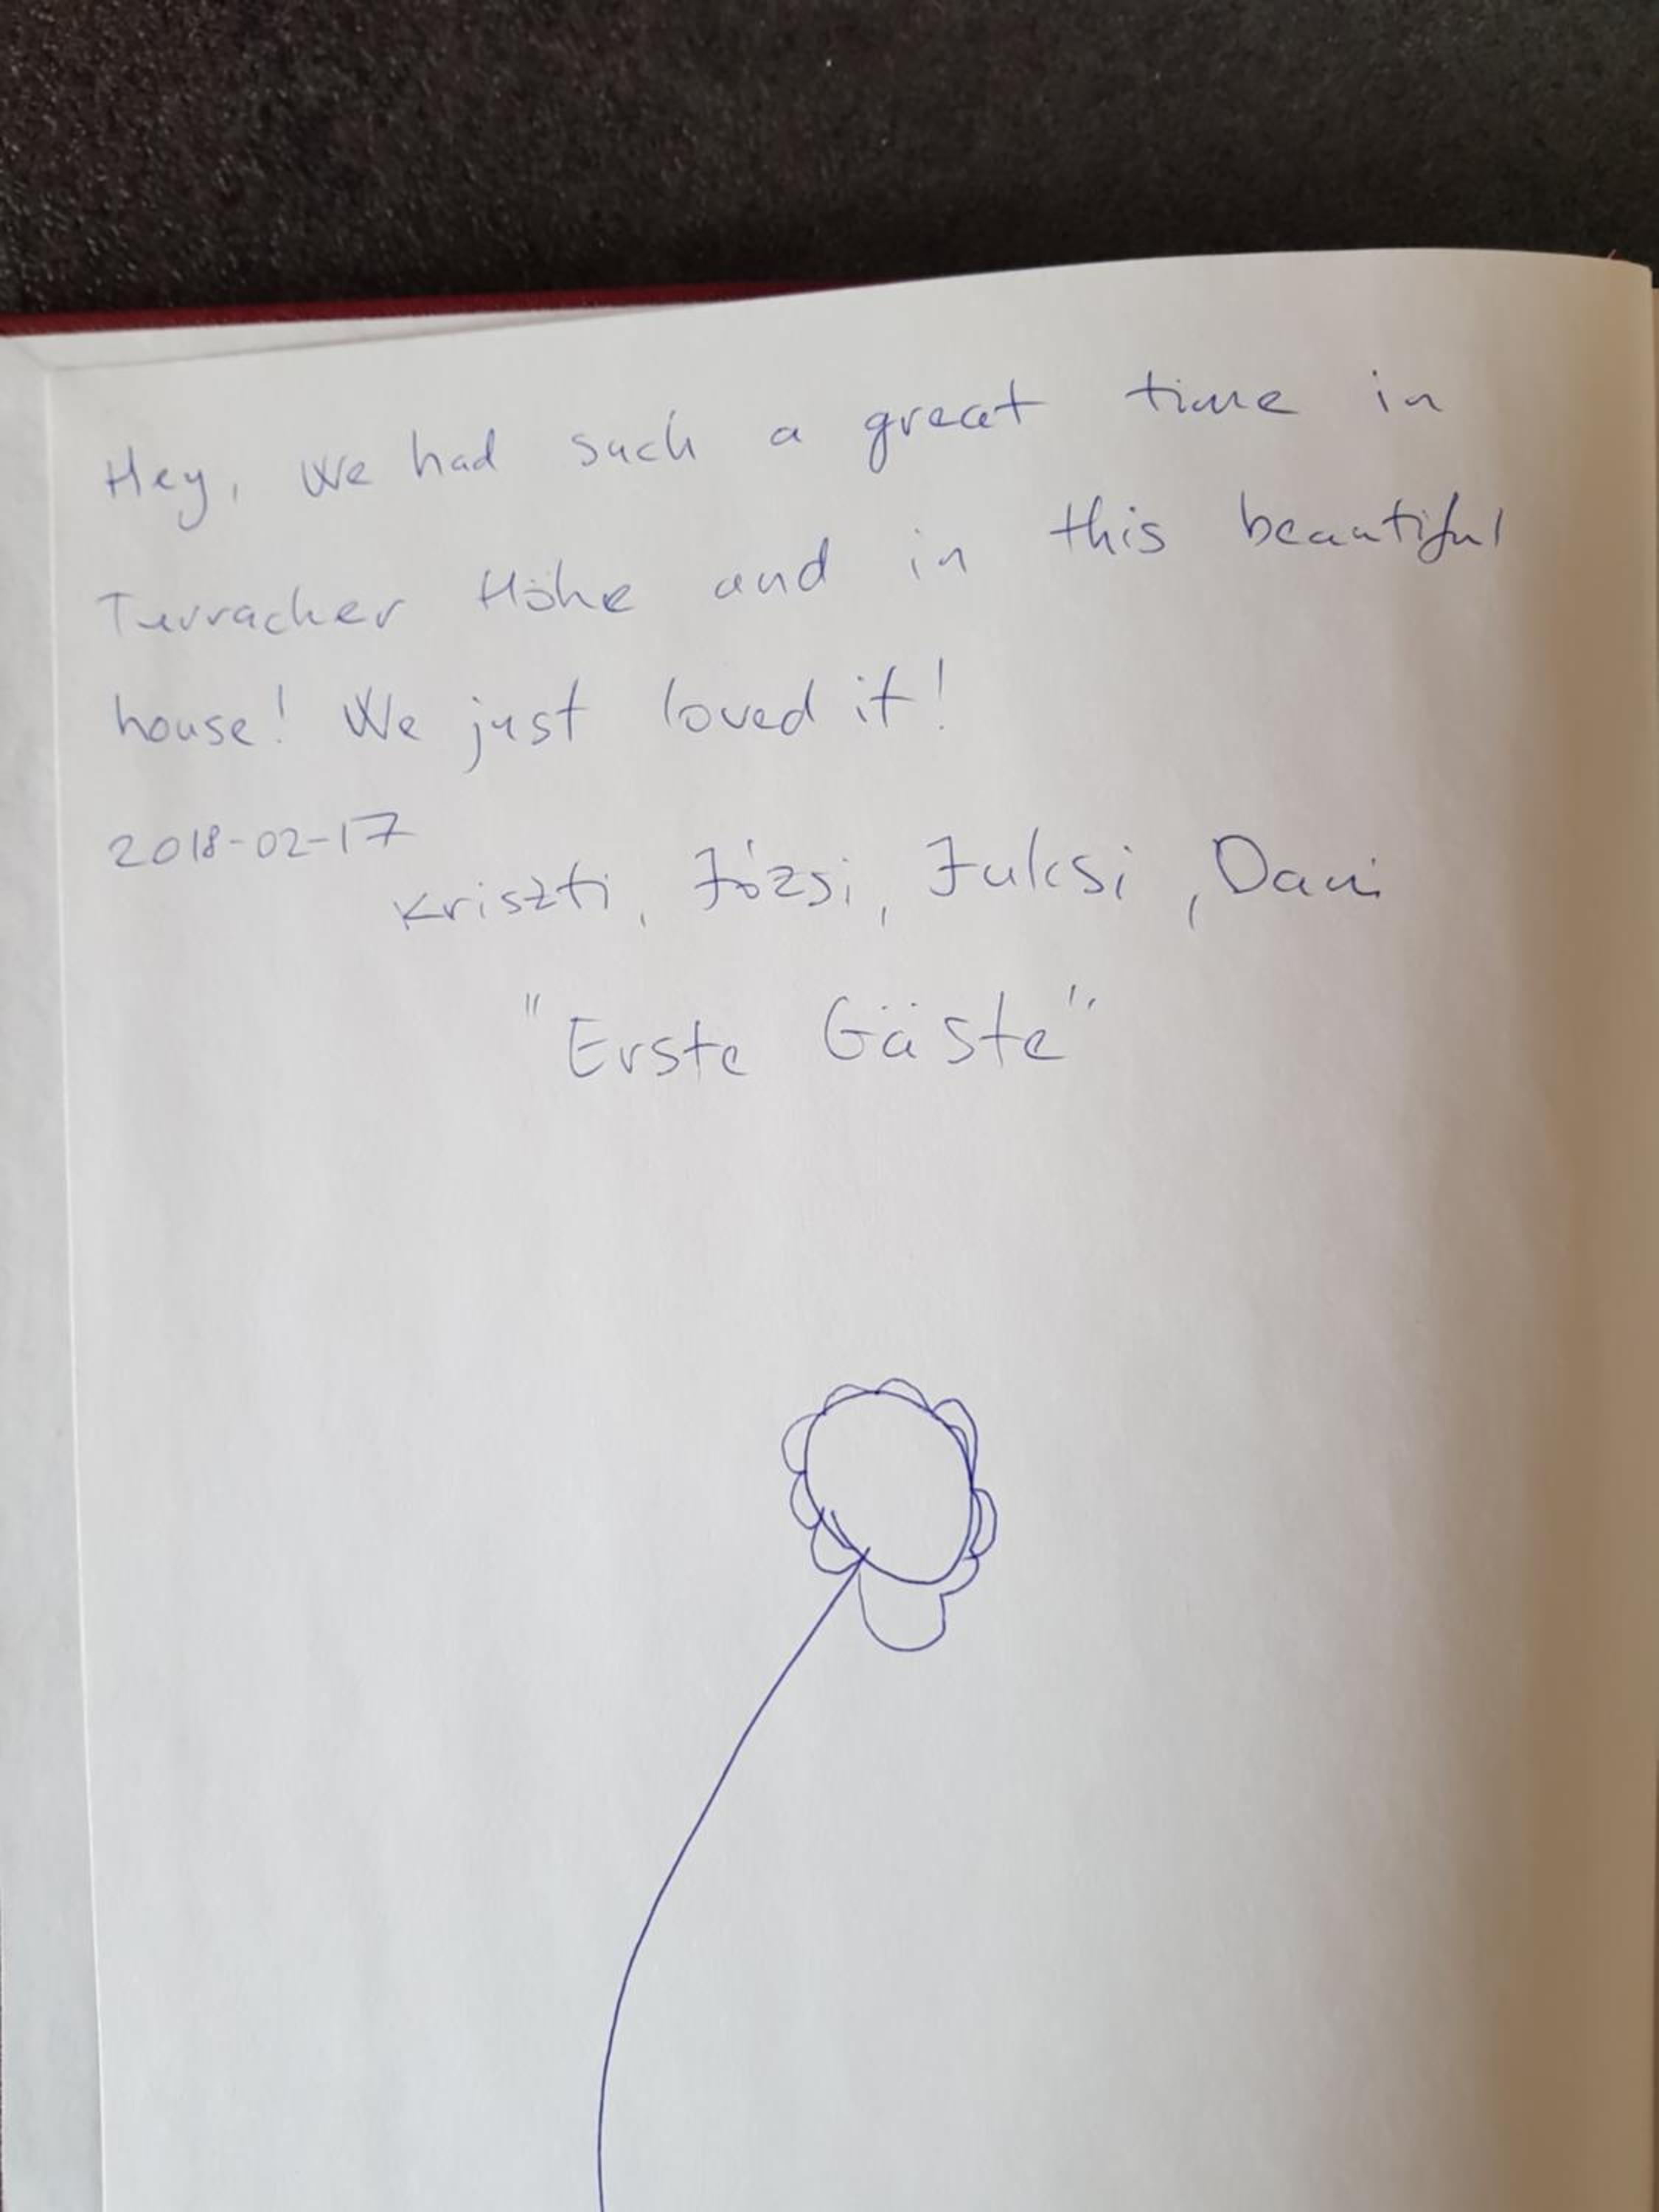 Hey, We had such a great time in
Turracher Höhe and in this beautiful
house! We just loved it!
2018-02-17
Kriszti, Józsi, Julcsi, Dani
"Erste Gäste"